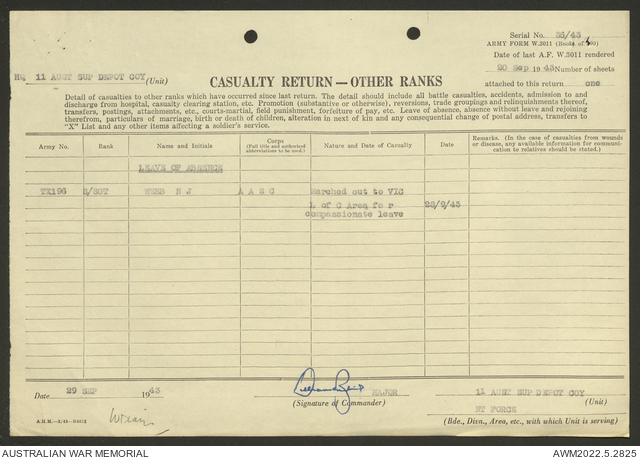 Serial No. 36/43
ARMY FORM W.3011 (Books of 100)
Date of last A.F. W.3011 rendered
HQ 11 AUST SUP DEPOT COY (Unit)
20 Sep 1943 Number of sheets
CASUALTY RETURN—OTHER RANKS
attached to this return one
Detail of casualties to other ranks which have occurred since last return. The detail should include all battle casualties, accidents, admission to and
discharge from hospital, casualty clearing station, etc. Promotion (substantive or otherwise), reversions, trade groupings and relinquishments thereof,
transfers, postings, attachments, etc., courts-martial, field punishment, forfeiture of pay, etc. Leave of absence, absence without leave and rejoining
therefrom, particulars of marriage, birth or death of children, alteration in next of kin and any consequential change of postal address, transfers to
"X" List and any other items affecting a soldier's service.
Army No. Rank Name and Initials Corps (Full title and authorized abbreviations to be used.) Nature and Date of Casualty Date Remarks. (In the case of casualties from wounds or disease, any available information for communication to relatives should be stated.)
LEAVE OF ABSENCE
TX196 S/SGT WEBB N J A A S C Marched out to VIC
L of C Area fo r 28/9/43
compassionate leave
Date 29 SEP 1943
MAJOR
11 AUST SUP DEPOT COY (Unit)
(Signature of Commander)
NT FORCE
(Bde., Divn., Area, etc., with which Unit is serving)
AUSTRALIAN WAR MEMORIAL
AWM2022.5.2825